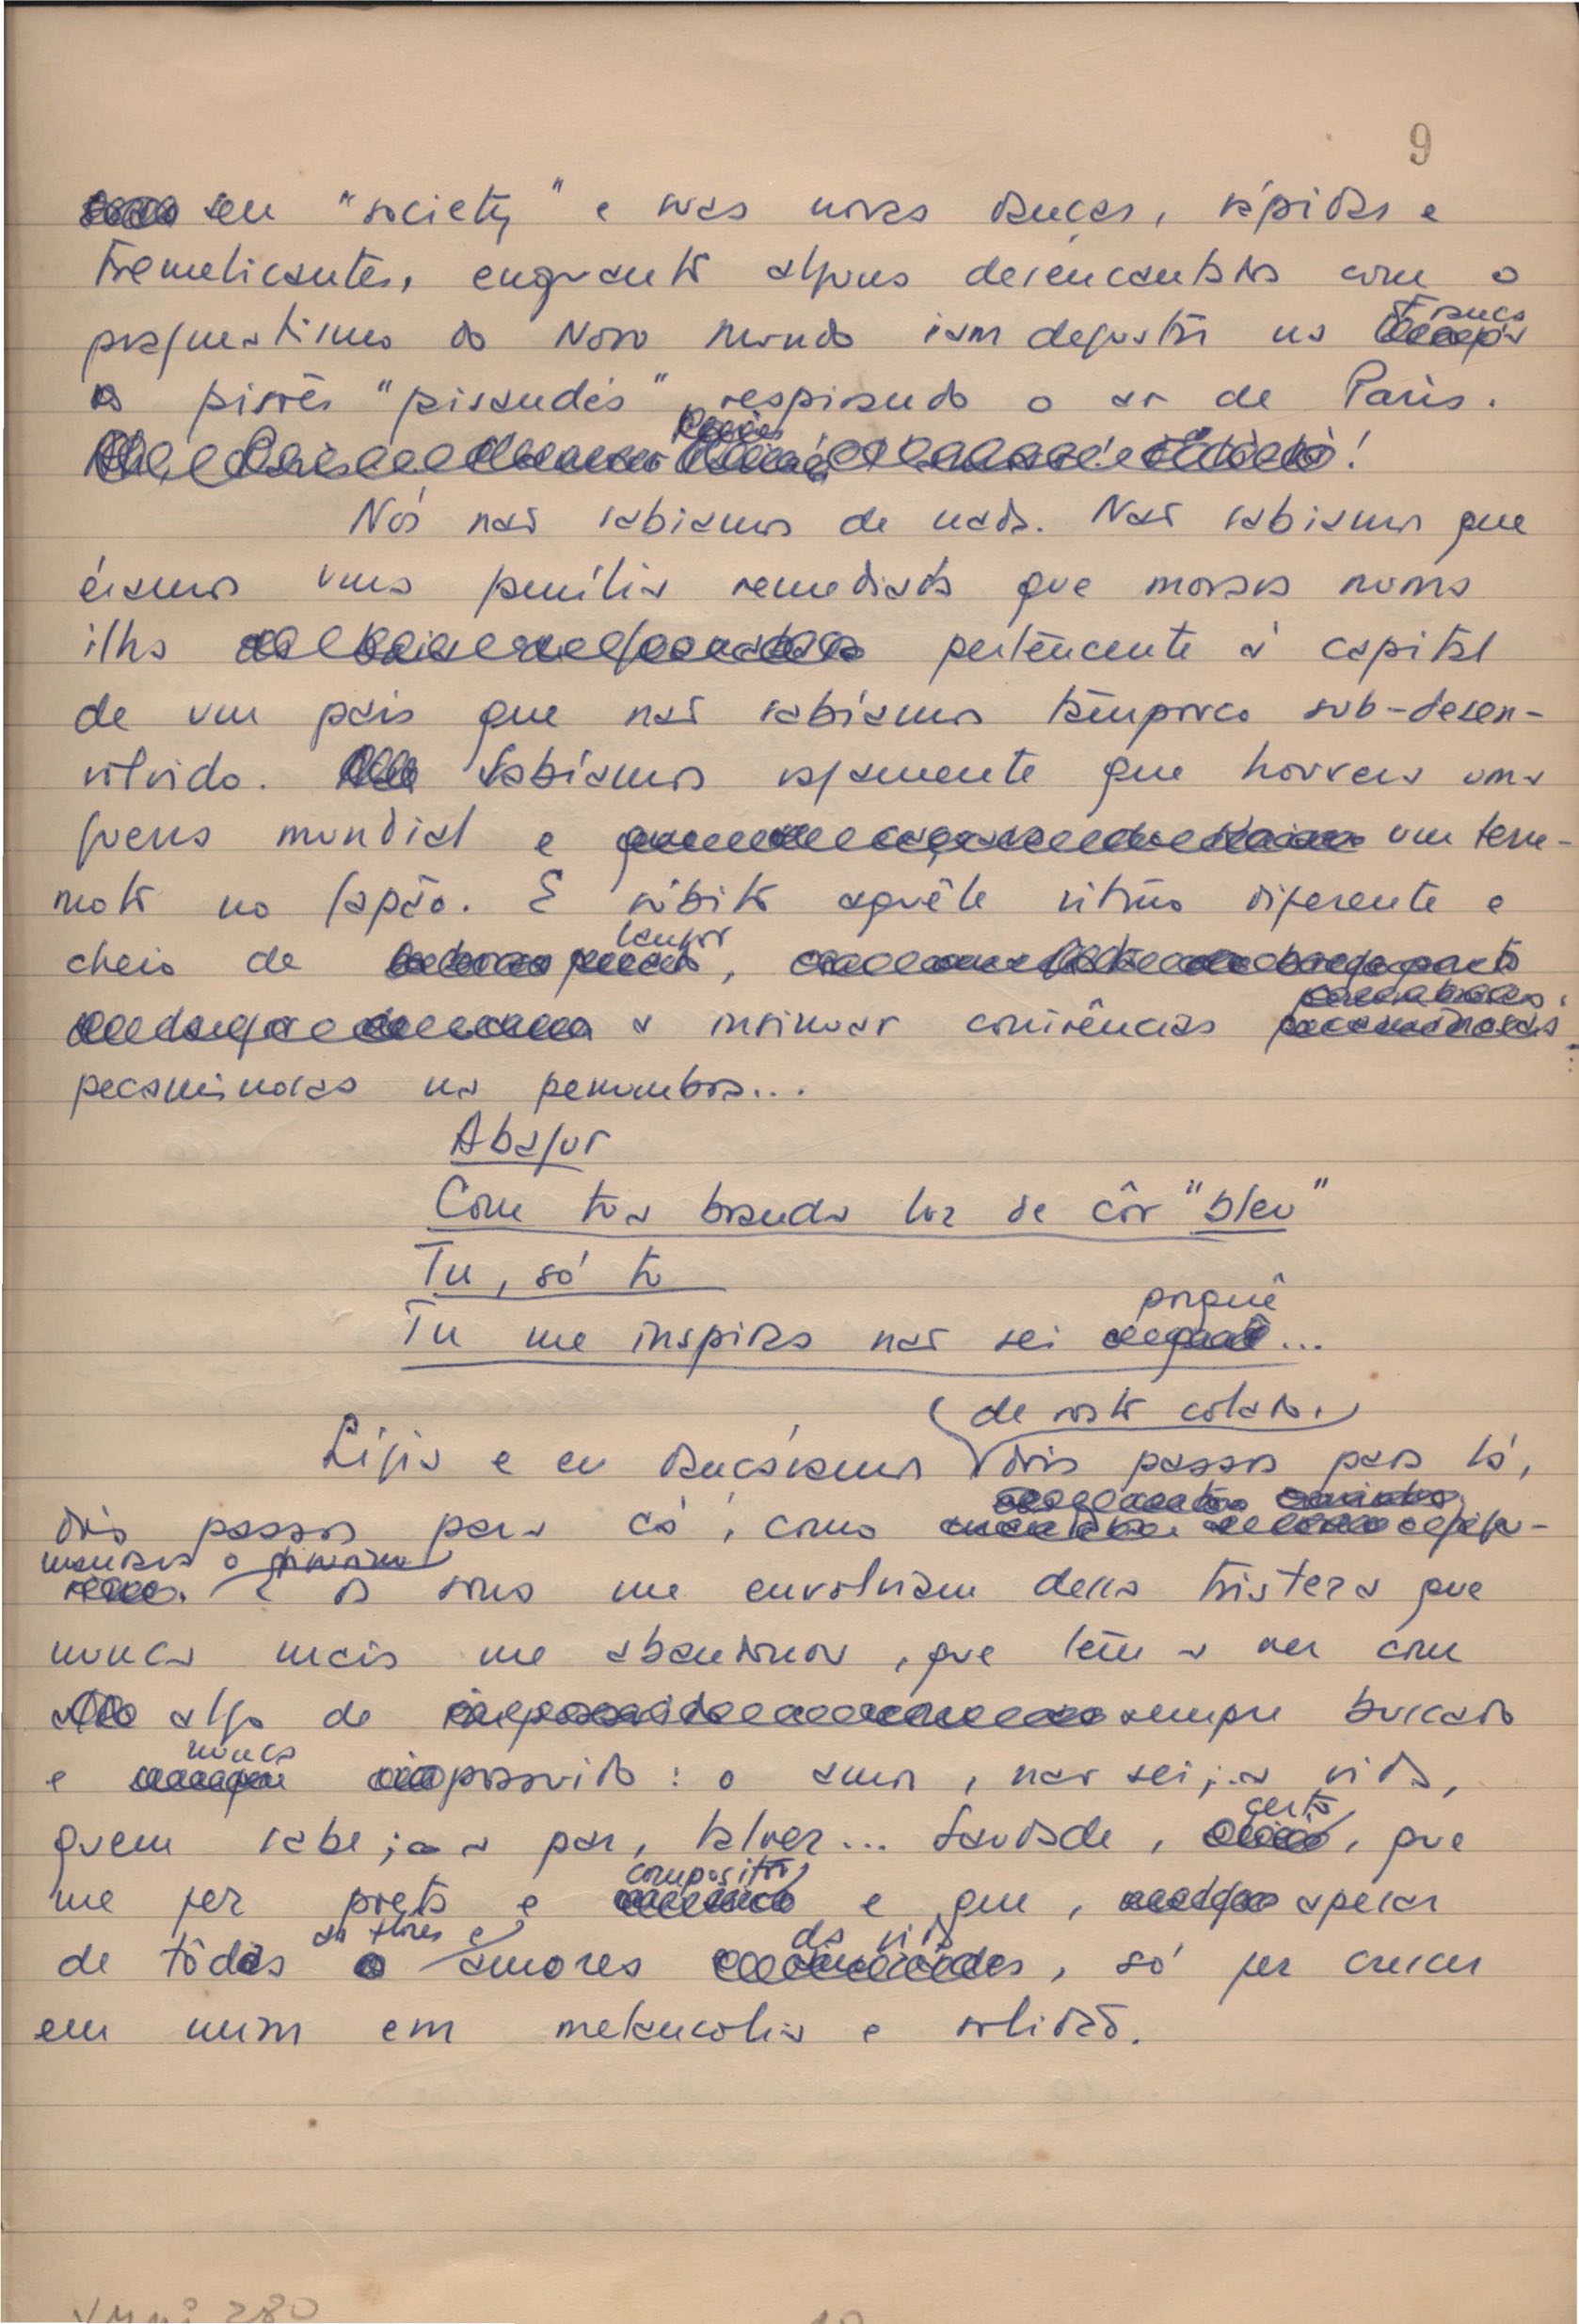 9
seu "society" e suas novas danças, rápidas e
tremelicantes, enquanto alguns desencantados com o
pragmatismo do Novo Mundo iam degustar na França
os pivrês "pisandés", respirando o ar de Paris.
Nós não sabíamos de nada. Não sabíamos que
éramos uma família remediada que morava numa
ilha pertencente à capital
de um país que não sabíamos tampouco sub-desen-
volvido. Sabíamos vagamente que houvera uma
guerra mundial e um terre-
moto no Japão. E súbito aquêle ritmo diferente e
cheio de langor,
a insinuar conivências
pecaminosas na penumbra...
Abajur
Com tua branda luz de côr "bleu"
Tu, só tu
Tu me inspiras não sei porquê...
Lígia e eu dançávamos de rosto colado, dois passos para lá,
dois passos para cá, como
mandava o figurino. E os sons me envolviam dessa tristeza que
nunca mais me abandonou, que tem a ver com
algo de sempre buscado
e nunca possuído: o amor, não sei; a vida,
quem sabe; a paz, talvez... Saudade, certo, que
me fez poeta e compositor e que, apesar
de tôdas as flores e amores da vida, só fez crescer
em mim em melancolia e solidão.